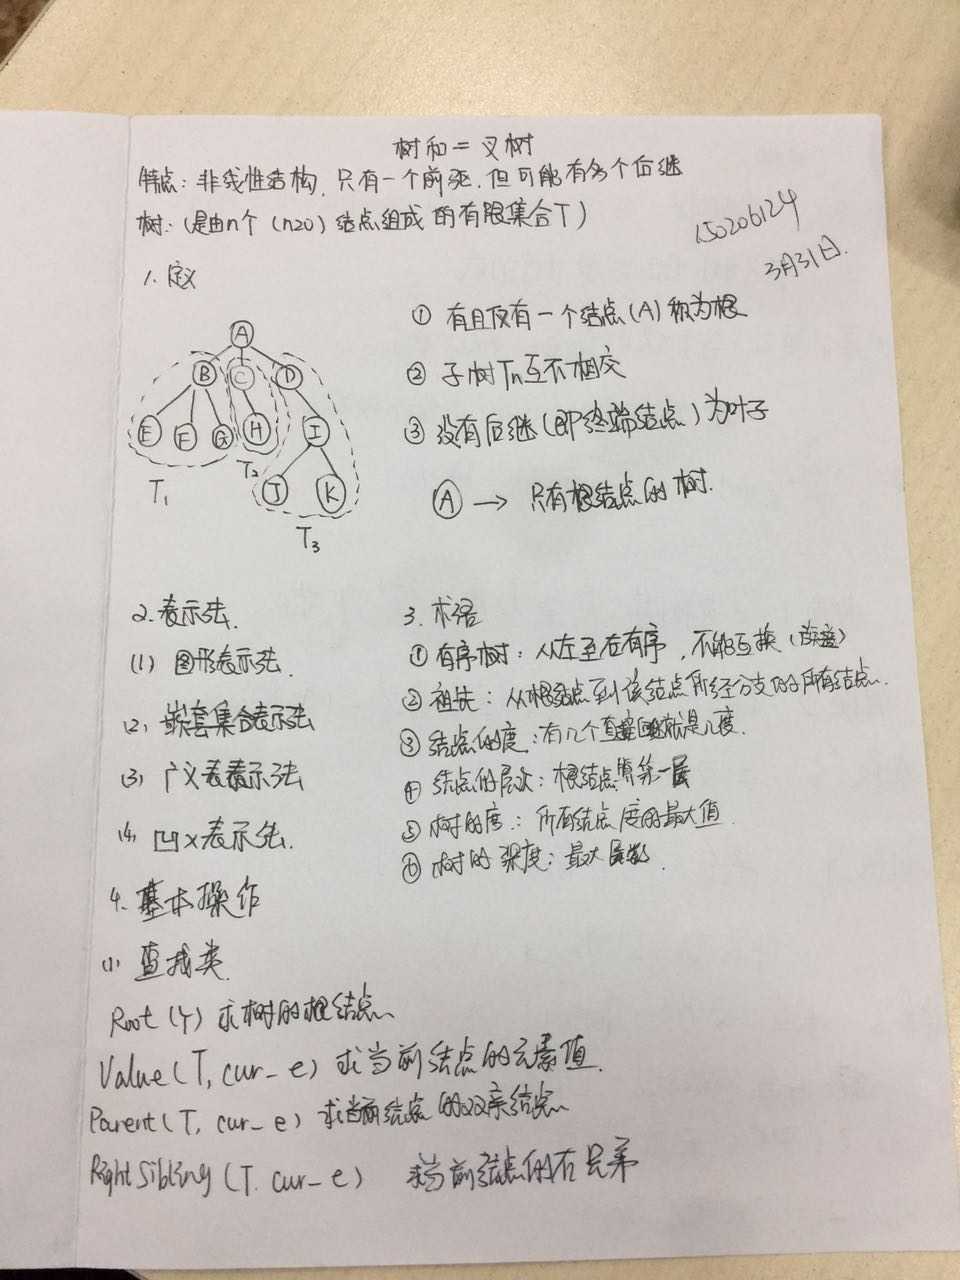 树和二叉树
特点：非线性结构，只有一个前驱，但可能有多个后继
树：(是由n个 (n≥0) 结点组成的有限集合T)
150206124
3月31日.
1. 定义
A
B C D
E F G H I
J K
T1 T2 T3
① 有且仅有一个结点(A)称为根
② 子树Tn互不相交
③ 没有后继(即终端结点)为叶子
A → 只有根结点的树.
2. 表示法.
(1) 图形表示法
(2) 嵌套集合表示法
(3) 广义表表示法
(4) 凹入表示法.
3. 术语
① 有序树：从左至右有序，不能互换(族谱)
② 祖先：从根结点到该结点所经分支的所有结点.
③ 结点的度：有几个直接就是几度.
④ 结点的层次：根结点第一层
⑤ 树的度：所有结点度的最大值.
⑥ 树的深度：最大层数.
4. 基本操作
(1) 查找类.
Root (T) 求树的根结点
Value (T, cur_e) 求当前结点的元素值.
Parent (T, cur_e) 求当前结点的双亲结点
RightSibling (T, cur_e) 求当前结点的右兄弟